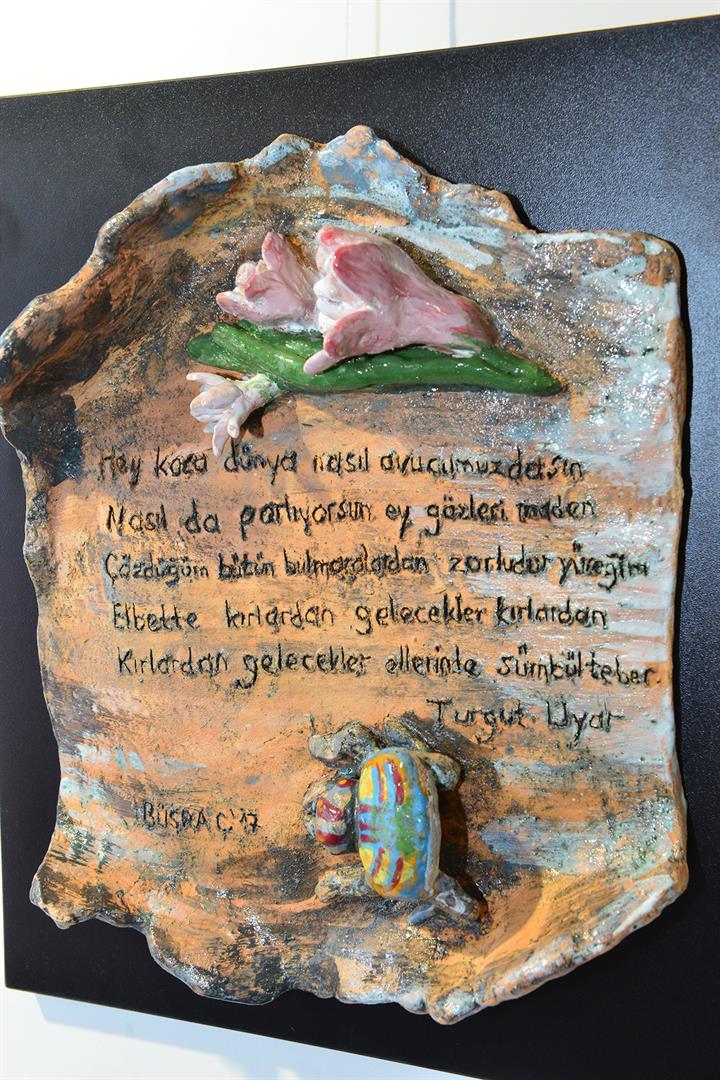 Hey koca dünya nasıl avucumuzdasın
Nasıl da parlıyorsun ey gözleri maden
Çözdüğüm bütün bulmacalardan zorludur yüreğim
Elbette kırlardan gelecekler kırlardan
Kırlardan gelecekler ellerinde sümbülteber.
Turgut Uyar
BÜŞRA Ç'17